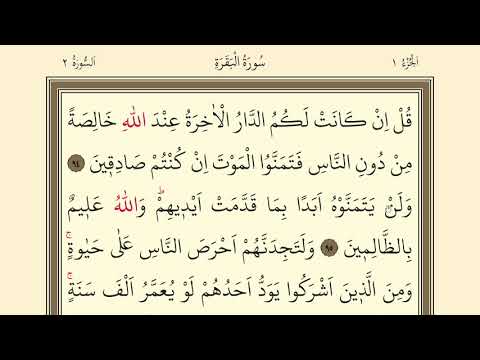 اَلْجُزْءُ ١ سُورَةُ الْبَقَرَةِ اَلسُّورَةُ ٢
قُلْ اِنْ كَانَتْ لَكُمُ الدَّارُ الْاٰخِرَةُ عِنْدَ اللّٰهِ خَالِصَةً
مِنْ دُونِ النَّاسِ فَتَمَنَّوُا الْمَوْتَ اِنْ كُنْتُمْ صَادِق۪ينَ ٩٤
وَلَنْ يَتَمَنَّوْهُ اَبَدًا بِمَا قَدَّمَتْ اَيْد۪يهِمْۜ وَاللّٰهُ عَل۪يمٌ
بِالظَّالِم۪ينَ ٩٥ وَلَتَجِدَنَّهُمْ اَحْرَصَ النَّاسِ عَلٰى حَيٰوةٍۚ
وَمِنَ الَّذ۪ينَ اَشْرَكُوا يَوَدُّ اَحَدُهُمْ لَوْ يُعَمَّرُ اَلْفَ سَنَةٍۚ